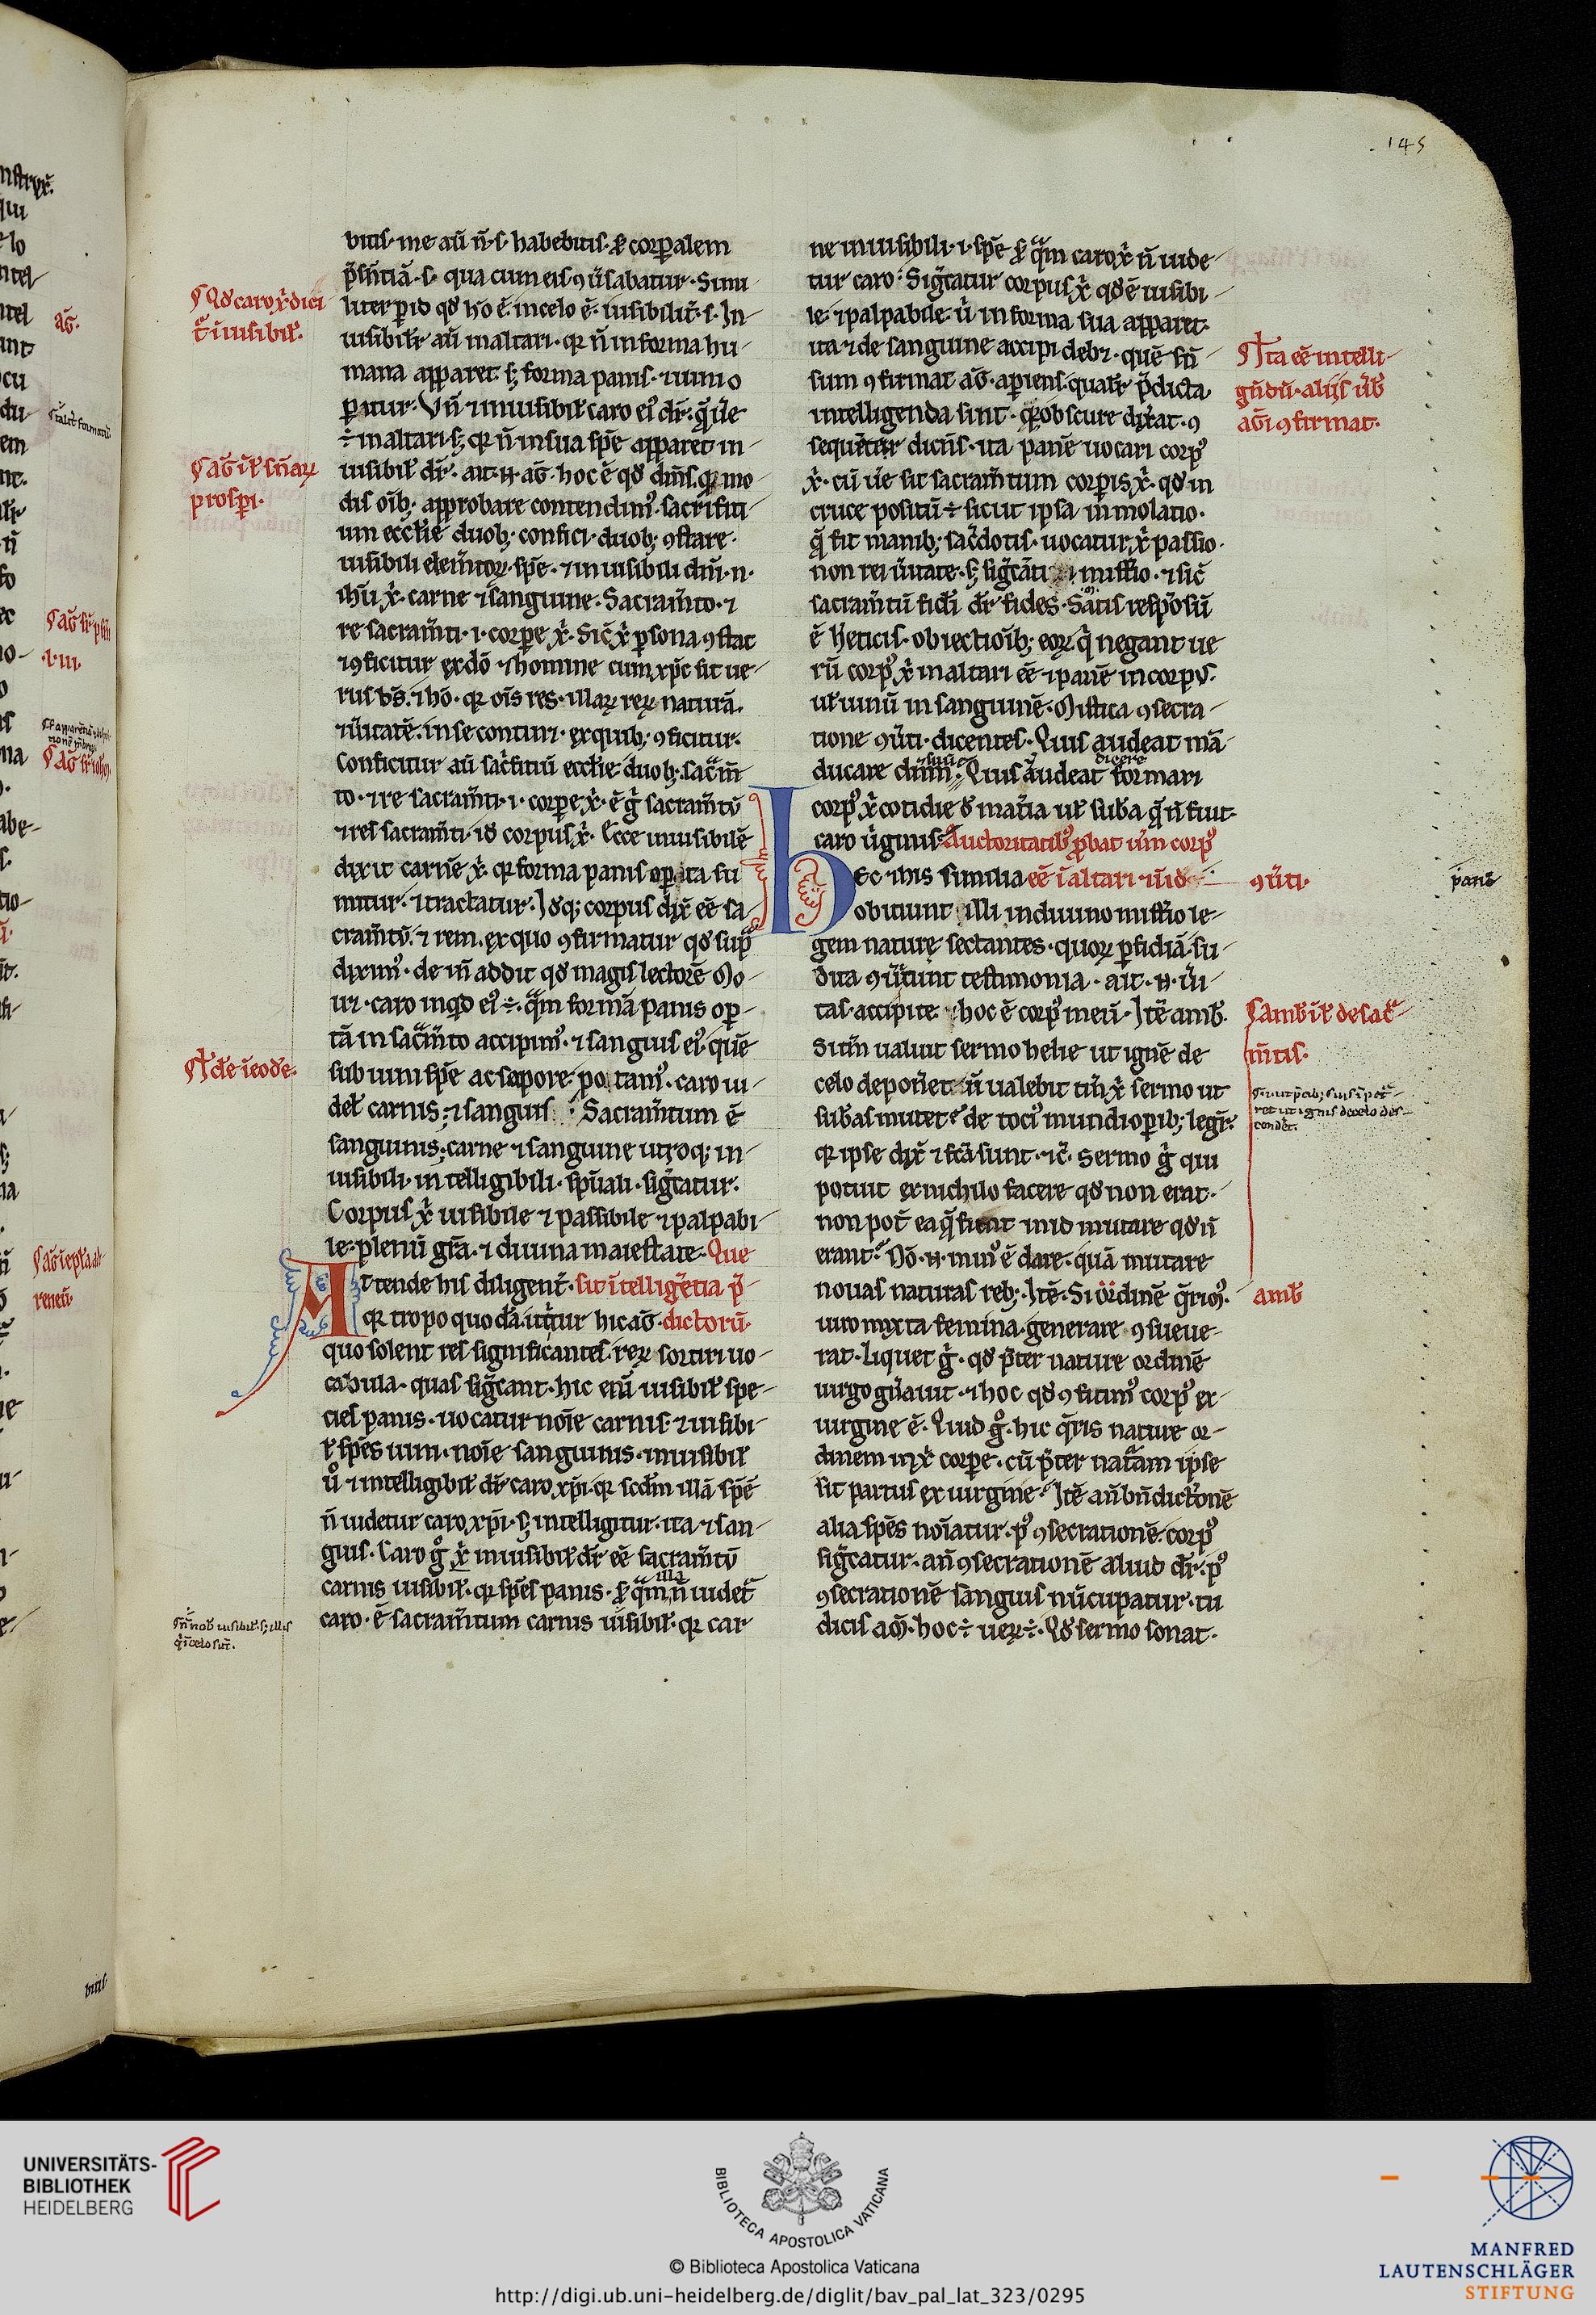 145
bitis. me aū n̄. s. habebitis. ꝓ corꝑalem
p̄sn̄tiā. s. qua cum eis ꝯūsabatur. Simi-
liter ꝑ id qd̄ hō ē. in celo ē. īuisibilit̄. s. In-
uisibilit̄ aū in altari. qꝛ n̄ in forma hu-
mana apparet. s; forma panis. ⁊ uini o
ꝑitur. Vn̄ ⁊ inuisibil̄ caro ei᷒ dr̄. q̄ ūe
÷ in altari. s; qꝛ n̄ in sua sp̄e apparet in-
uisibil̄ dr̄. ait. n̄. aḡ. hoc ē qd̄ dn̄s. qꝛ mo-
dis oīb; approbare contendim᷒. sacrifici-
um eccl̄ie duob; confici. duob; ꝯstare.
uisibili elem̄toꝝ sp̄e. ⁊ inuisibili dn̄i. n.
ih̄u x̄. carne ⁊ sanguine. Sacram̄to. ⁊
re sacram̄ti. i. corpe x̄. Sic̄ x̄ ꝑsona ꝯstat
⁊ ꝯficitur ex dō ⁊ homine cum xp̄c sit ue-
rus ds̄. ⁊ hō. qꝛ oīs res. illaꝝ reꝝ naturā.
⁊ ūitatē. in se continꝫ. ex quib; ꝯficitur.
Conficitur aū sac̄ficiū eccl̄ie duob; sac̄m̄
to. ⁊ re sacram̄ti. i. corpe x̄. ē ḡ sacram̄tū
⁊ res sacram̄ti. id corpus x̄. Ecce inuisibilē
dixit carnē x̄. qꝛ forma panis oꝑta su
mitur. ⁊ tractatur. Idq; corpus dix̄ eē sa-
cram̄tū. ⁊ rem. ex quo ꝯfirmatur qd̄ sup̄
dixim᷒. de īn addit qd̄ magis lectorē mo-
uꝫ. caro inqd ei᷒ ÷. q̄m formā panis oꝑ-
tā in sac̄m̄to accipim᷒. ⁊ sanguis ei᷒. quē
sub uini sp̄e ac sapore. potam᷒. caro ui-
del̄ carnis; ⁊ sanguis Sacram̄tum ē
sanguinis; carne ⁊ sanguine utroq; in-
uisibili. intelligibili. sp̄uali. siḡcatur.
Corpus x̄ uisibile ⁊ passibile ⁊ palpabi-
le. plenū grā. ⁊ diuina maiestate. Que
Attende his diligent̄. sit ītelligētia p̄
qꝛ tropo quodā utitur hic aḡ. dictorū.
quo solent res significantes. reꝝ sortiri uo-
cabula. quas siḡcant. hic enī uisibil̄ spe-
cies panis. uocatur noīe carnis. ⁊ uisibi-
l̄ sp̄es uini. noīe sanguinis. inuisibil̄
ū ⁊ intelligibil̄ dr̄ caro xp̄i. qꝛ scd̄m illā sp̄ē
n̄ uidetur caro xp̄i. s; intelligitur. ita ⁊ san-
guis. Caro ḡ x̄ inuisibil̄ dr̄ eē sacram̄tū
carnis uisibil̄. qꝛ sp̄es panis. ꝓ q̄m illa n̄ uidet̄
caro. ē sacram̄tum carnis uīsibil̄. qꝛ car
ne inuisibili. i. sp̄e ꝓ q̄m caro x̄ n̄ uide-
tur caro. Siḡcatur corpus x̄ qd̄ ē uisibi-
le. ⁊ palpabile. ū in forma sua apparet.
ita ⁊ de sanguine accipi debꝫ. quē sn̄-
sum ꝯfirmat aḡ. aperiens qualit̄ p̄dicta
intelligenda sint. qꝛ obscure dixat. ꝯ
sequēter dicn̄s. ita panē uocari corp᷒
x̄. cū ūe sit sacram̄tum corpis x̄. qd̄ in
cruce positū ÷ sicut ipsa inmolatio.
q̄ fit manib; sac̄dotis. uocatur x̄ passio.
non rei ūitate. s; siḡcāti mist̄io. ⁊ sic̄
sacram̄tū fidi dr̄ fides. Satis resp̄osū
ē h̄eticis. ob iectioīb; eoꝝ q̄ negant ue
rū corp᷒ x̄ in altari eē ⁊ panē in corp᷒.
ul̄ uinū in sanguinē. mistica ꝯsecra-
tione ꝯūti. dicentes. Quis audeat mā-
ducare dn̄m suū. Quis audeat dicere formari
corp᷒ x̄ cotidie d̄ mat̄ia ul̄ sub̄a q̄ n̄ fuit.
caro ūginis. Auctoritatib᷒ ꝓbat uīm corp᷒
Hec ⁊ his similia eē ī altari. ⁊
obitiunt illi in diuino mist̄io le-
gem nature sectantes. quoꝝ ꝑfidiā su-
dita ꝯūtunt testimonia. ait. n̄. ūi-
tas. accipite. hoc ē corp᷒ meū. Itē amb̄.
Si tm̄ ualuit sermo helie ut ignē de
celo deponet. n̄ ualebit tm̄ x̄ sermo ut
sub̄as mutet. de toci᷒ mundi opib; legr̄.
qꝛ ipse dix̄ ⁊ fcā sunt. ⁊c̄. Sermo ḡ qui
potuit ex nichilo facere qd̄ non erat.
non pot̄ ea q̄ sunt in id mutare qd̄ n̄
erant. Nō. n̄. min᷒ ē dare. quā mutare
nouas naturas reb;. Itē. Si ordinē q̄rim᷒.
uiro mixta femina. generare ꝯsueue-
rat. liquet ḡ. qd̄ p̄ter nature ordinē
uirgo gn̄auit. ⁊ hoc qd̄ ꝯficim᷒ corp᷒ ex
uirgine ē. Quid ḡ. hic q̄ris nature or-
dinem in x̄ corpe. cū p̄ter nat̄am ipse
sit partus ex uirgine. Itē an̄ bn̄dictōnē
alia sp̄es noīatur. p᷒ ꝯsecrationē. corp᷒
siḡcatur. an̄ ꝯsecrationē aliud dr̄. p᷒
ꝯsecrationē sanguis nūcupatur. tu
dicis am̄. hoc ÷ ueꝝ ÷. Qd̄ sermo sonat.
Qd̄ caro x̄ dici
t̄ īuisibil̄.
aḡ ī l̄ sn̄aꝝ
prosꝑi.
Idē ī eodē.
Ita eē intelli-
gn̄dū. alijs ūb̄
aḡi ꝯfirmat.
ꝯūti.
panē
amb̄ ī l̄ de sac̄-
m̄tis.
amb̄
UNIVERSITÄTS-
BIBLIOTHEK
HEIDELBERG
BIBLIOTECA APOSTOLICA VATICANA
© Biblioteca Apostolica Vaticana
http://digi.ub.uni-heidelberg.de/diglit/bav_pal_lat_323/0295
MANFRED
LAUTENSCHLÄGER
STIFTUNG